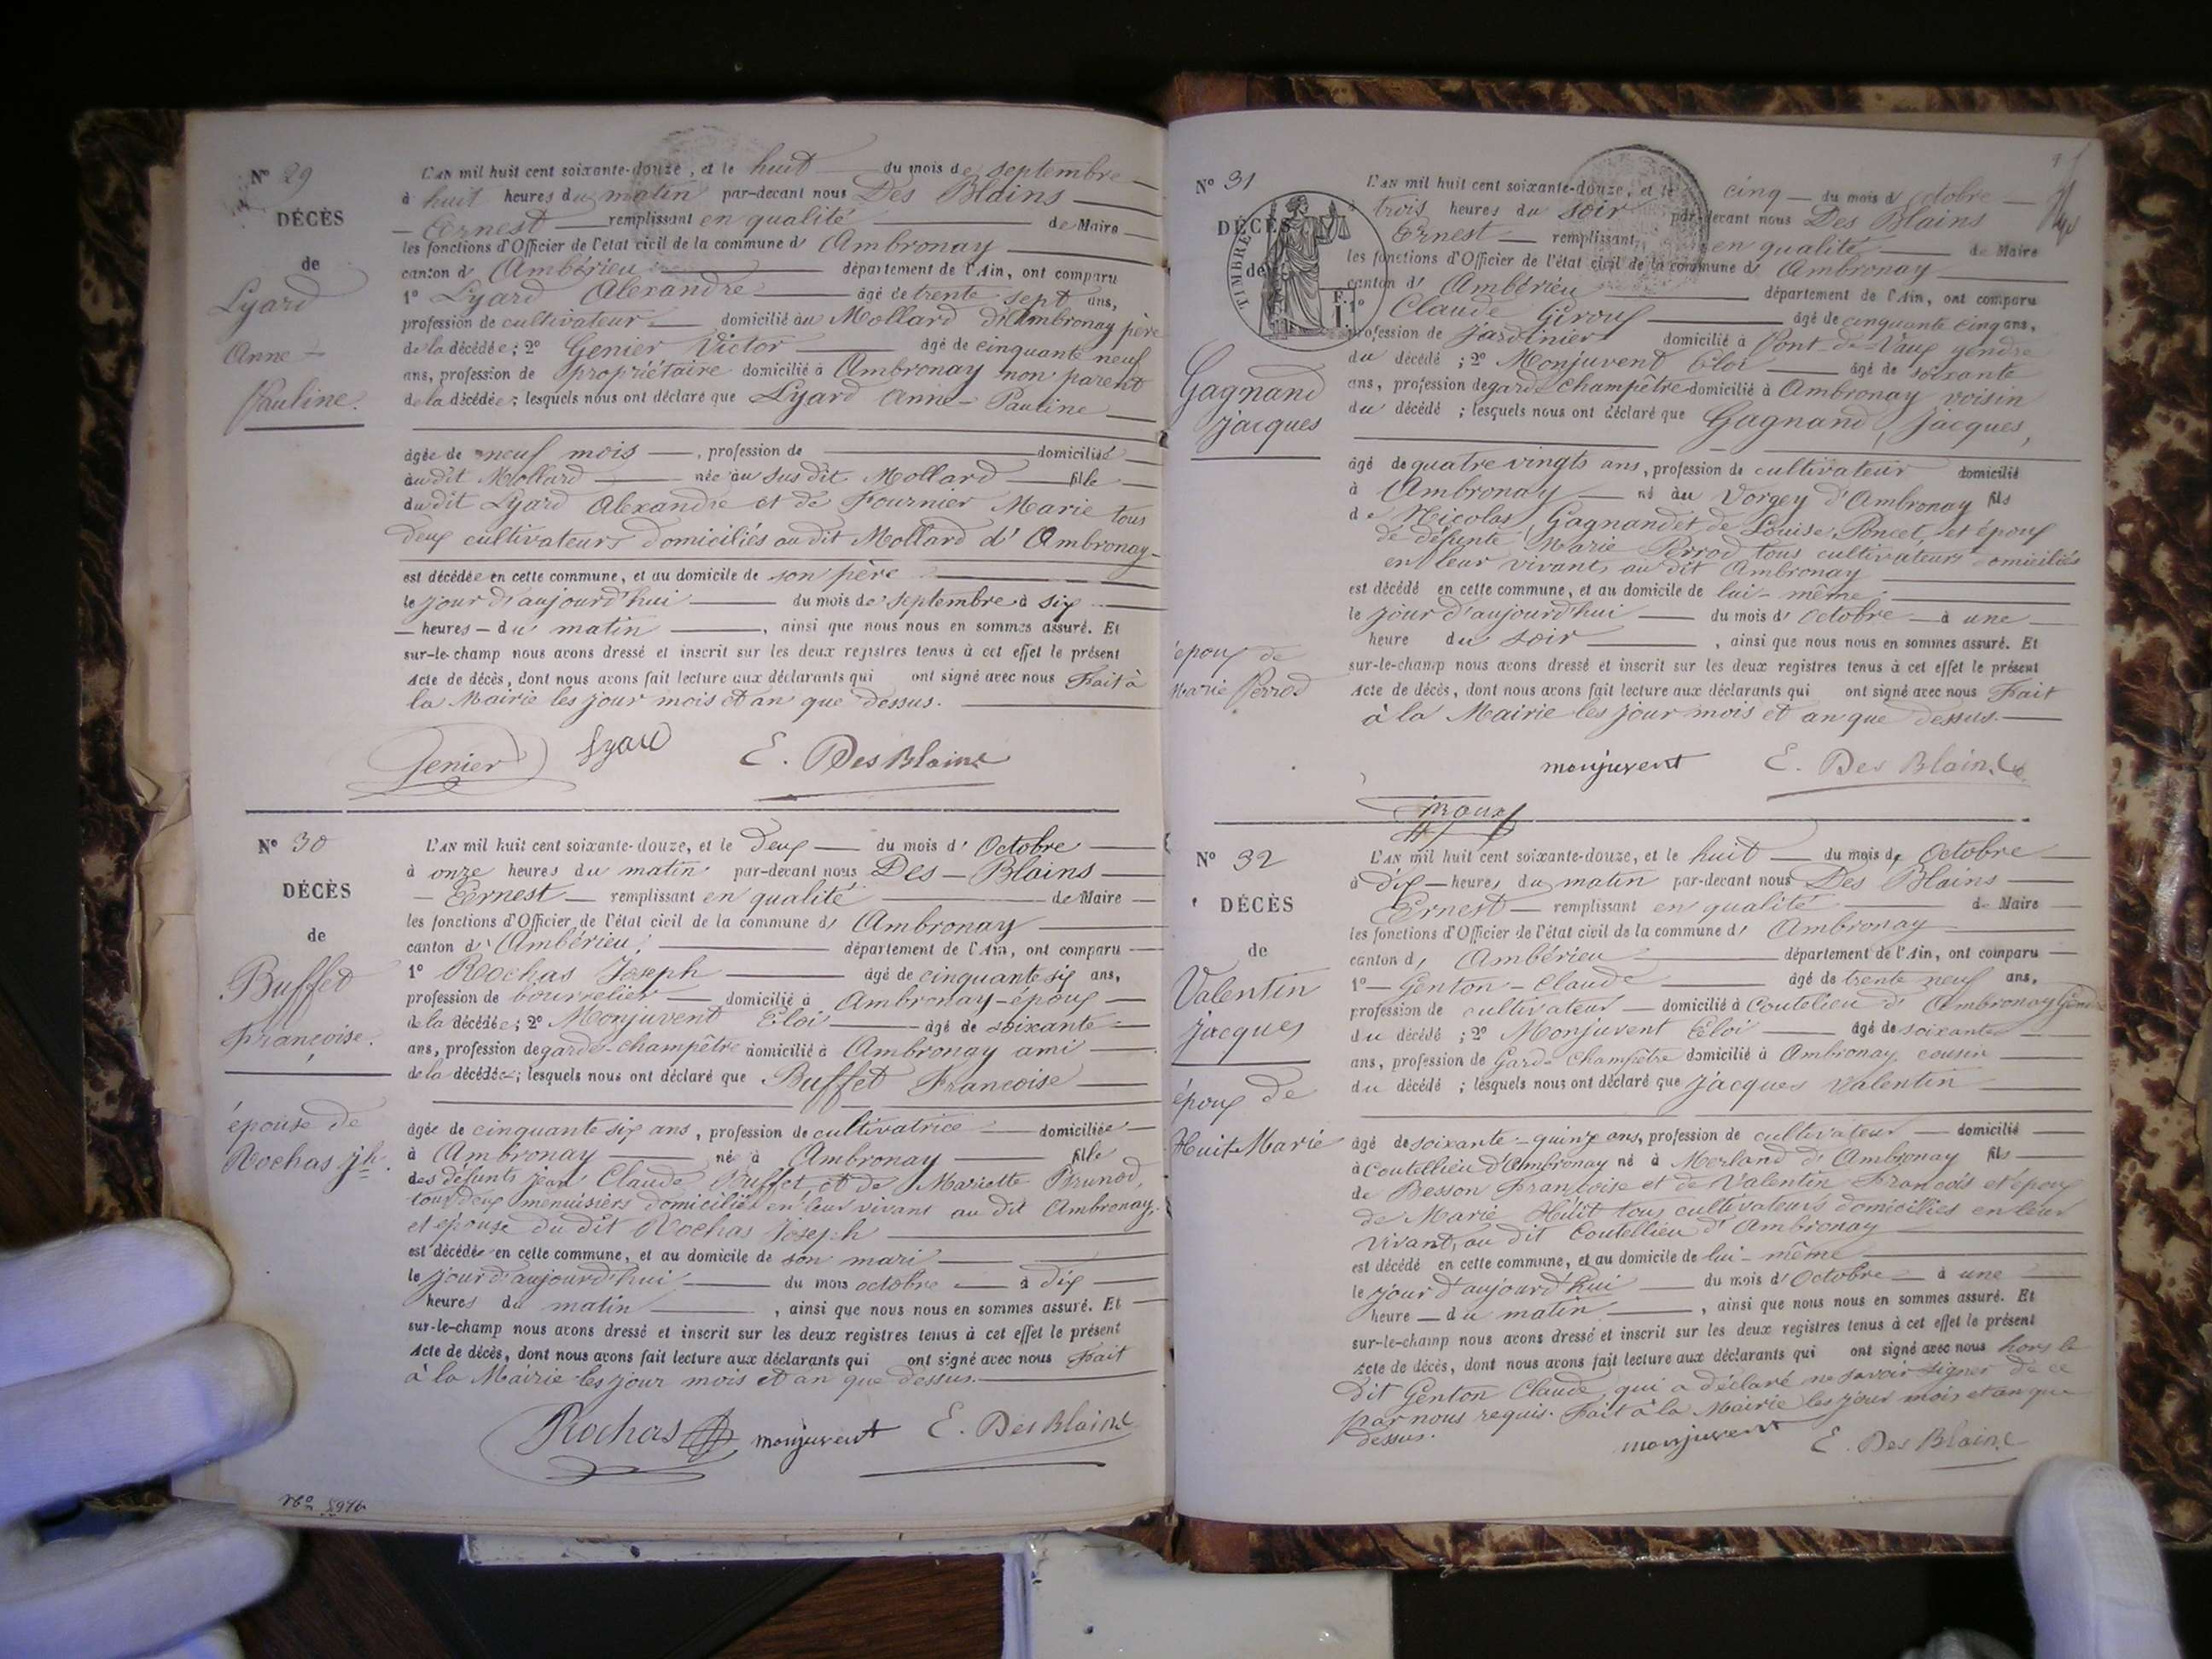 N° 29
DÉCÈS
de
Lyard
Anne -
Pauline.
L'AN mil huit cent soixante-douze, et le huit du mois de septembre
à huit heures du matin par-devant nous Des Blains
Ernest remplissant en qualité de Maire
les fonctions d'Officier de l'état civil de la commune d' Ambronay
canton d' Ambérieu département de l'Ain, ont comparu
1° Lyard Alexandre âgé de trente sept ans,
profession de cultivateur domicilié au Mollard d'Ambronay père
de la décédée; 2° Genier Victor âgé de cinquante neuf
ans, profession de propriétaire domicilié à Ambronay non parent
de la décédée; lesquels nous ont déclaré que Lyard Anne-Pauline
âgée de neuf mois, profession de domiciliée
au dit Mollard née au sus dit Mollard fille
du dit Lyard Alexandre et de Fournier Marie tous
deux cultivateurs domiciliés au dit Mollard d'Ambronay
est décédée en cette commune, et au domicile de son père
le jour d'aujourd'hui du mois de septembre à six
heures du matin, ainsi que nous nous en sommes assuré. Et
sur-le-champ nous avons dressé et inscrit sur les deux registres tenus à cet effet le présent
Acte de décès, dont nous avons fait lecture aux déclarants qui ont signé avec nous Fait à
la Mairie les jour mois et an que dessus.
Genier Lyard E. Des Blains
N° 30
DÉCÈS
de
Buffet
Françoise.
épouse de
Rochas jh.
L'AN mil huit cent soixante-douze, et le deux du mois d' Octobre
à onze heures du matin par-devant nous Des-Blains
Ernest remplissant en qualité de Maire
les fonctions d'Officier de l'état civil de la commune d' Ambronay
canton d' Ambérieu département de l'Ain, ont comparu
1° Rochas Joseph âgé de cinquante six ans,
profession de bourrelier domicilié à Ambronay-époux
de la décédée; 2° Monjuvent Eloi âgé de soixante
ans, profession de garde-champêtre domicilié à Ambronay ami
de la décédée; lesquels nous ont déclaré que Buffet Francoise
âgée de cinquante six ans, profession de cultivatrice domiciliée
à Ambronay né à Ambronay fille
des défunts jean Claude Buffet et de Mariette Brunod,
tous deux menuisiers domiciliés en leur vivant au dit Ambronay
et épouse du dit Rochas Joseph
est décédée en cette commune, et au domicile de son mari
le jour d'aujourd'hui du mois octobre à dix
heures du matin, ainsi que nous nous en sommes assuré. Et
sur-le-champ nous avons dressé et inscrit sur les deux registres tenus à cet effet le présent
Acte de décès, dont nous avons fait lecture aux déclarants qui ont signé avec nous Fait
à la Mairie les jour mois et an que dessus.
Rochas monjuvent E. Des Blains
N° 31
DÉCÈS
de
TIMBRE
Gagnand
jacques
époux de
Marie Perrod
L'AN mil huit cent soixante-douze, et le cinq du mois d'octobre
à trois heures du soir par-devant nous Des Blains
Ernest remplissant en qualité de Maire
les fonctions d'Officier de l'état civil de la commune d' Ambronay
canton d' Ambérieu département de l'Ain, ont comparu
1° Claude Giroux âgé de cinquante cinq ans,
profession de jardinier domicilié à Pont-de-Vaux gendre
du décédé; 2° Monjuvent Eloi âgé de soixante
ans, profession de garde champêtre domicilié à Ambronay voisin
du décédé; lesquels nous ont déclaré que Gagnand, jacques,
âgé de quatre vingts ans, profession de cultivateur domicilié
à Ambronay né au Vorgey d'Ambronay fils
de Nicolas Gagnand et de Louise Poncet, et époux
de défunte Marie Perrod tous cultivateurs domiciliés
en leur vivant, au dit Ambronay
est décédé en cette commune, et au domicile de lui-même
le jour d'aujourd'hui du mois d' octobre à une
heure du soir, ainsi que nous nous en sommes assuré. Et
sur-le-champ nous avons dressé et inscrit sur les deux registres tenus à cet effet le présent
Acte de décès, dont nous avons fait lecture aux déclarants qui ont signé avec nous Fait
à la Mairie les jour mois et an que dessus.
monjuvent E. Des Blains
N° 32
DÉCÈS
de
Valentin
jacques
époux de
Huit Marie
L'AN mil huit cent soixante-douze, et le huit du mois d' Octobre
à dix heures du matin par-devant nous Des Blains
Ernest remplissant en qualité de Maire
les fonctions d'Officier de l'état civil de la commune d' Ambronay
canton d' Ambérieu département de l'Ain, ont comparu
1° Genton-Claude âgé de trente neuf ans,
profession de cultivateur domicilié à Coutelieu d'Ambronay Gendre
du décédé; 2° Monjuvent Eloi âgé de soixante
ans, profession de Garde Champêtre domicilié à Ambronay, cousin
du décédé; lesquels nous ont déclaré que jacques Valentin
âgé de soixante-quinze ans, profession de cultivateur domicilié
à Coutellieu d'Ambronay né à Merland d'Ambronay fils
de Besson Françoise et de Valentin Francois et époux
de Marie Huit tous cultivateurs domiciliés en leur
vivant, au dit Coutellieu d'Ambronay
est décédé en cette commune, et au domicile de lui-même
le jour d'aujourd'hui du mois d' Octobre à une
heure du matin, ainsi que nous nous en sommes assuré. Et
sur-le-champ nous avons dressé et inscrit sur les deux registres tenus à cet effet le présent
Acte de décès, dont nous avons fait lecture aux déclarants qui ont signé avec nous hors le
dit Genton Claude, qui a déclaré ne savoir signer de ce
par nous requis. Fait à la Mairie les jour mois et an que
dessus.
monjuvent E. Des Blains